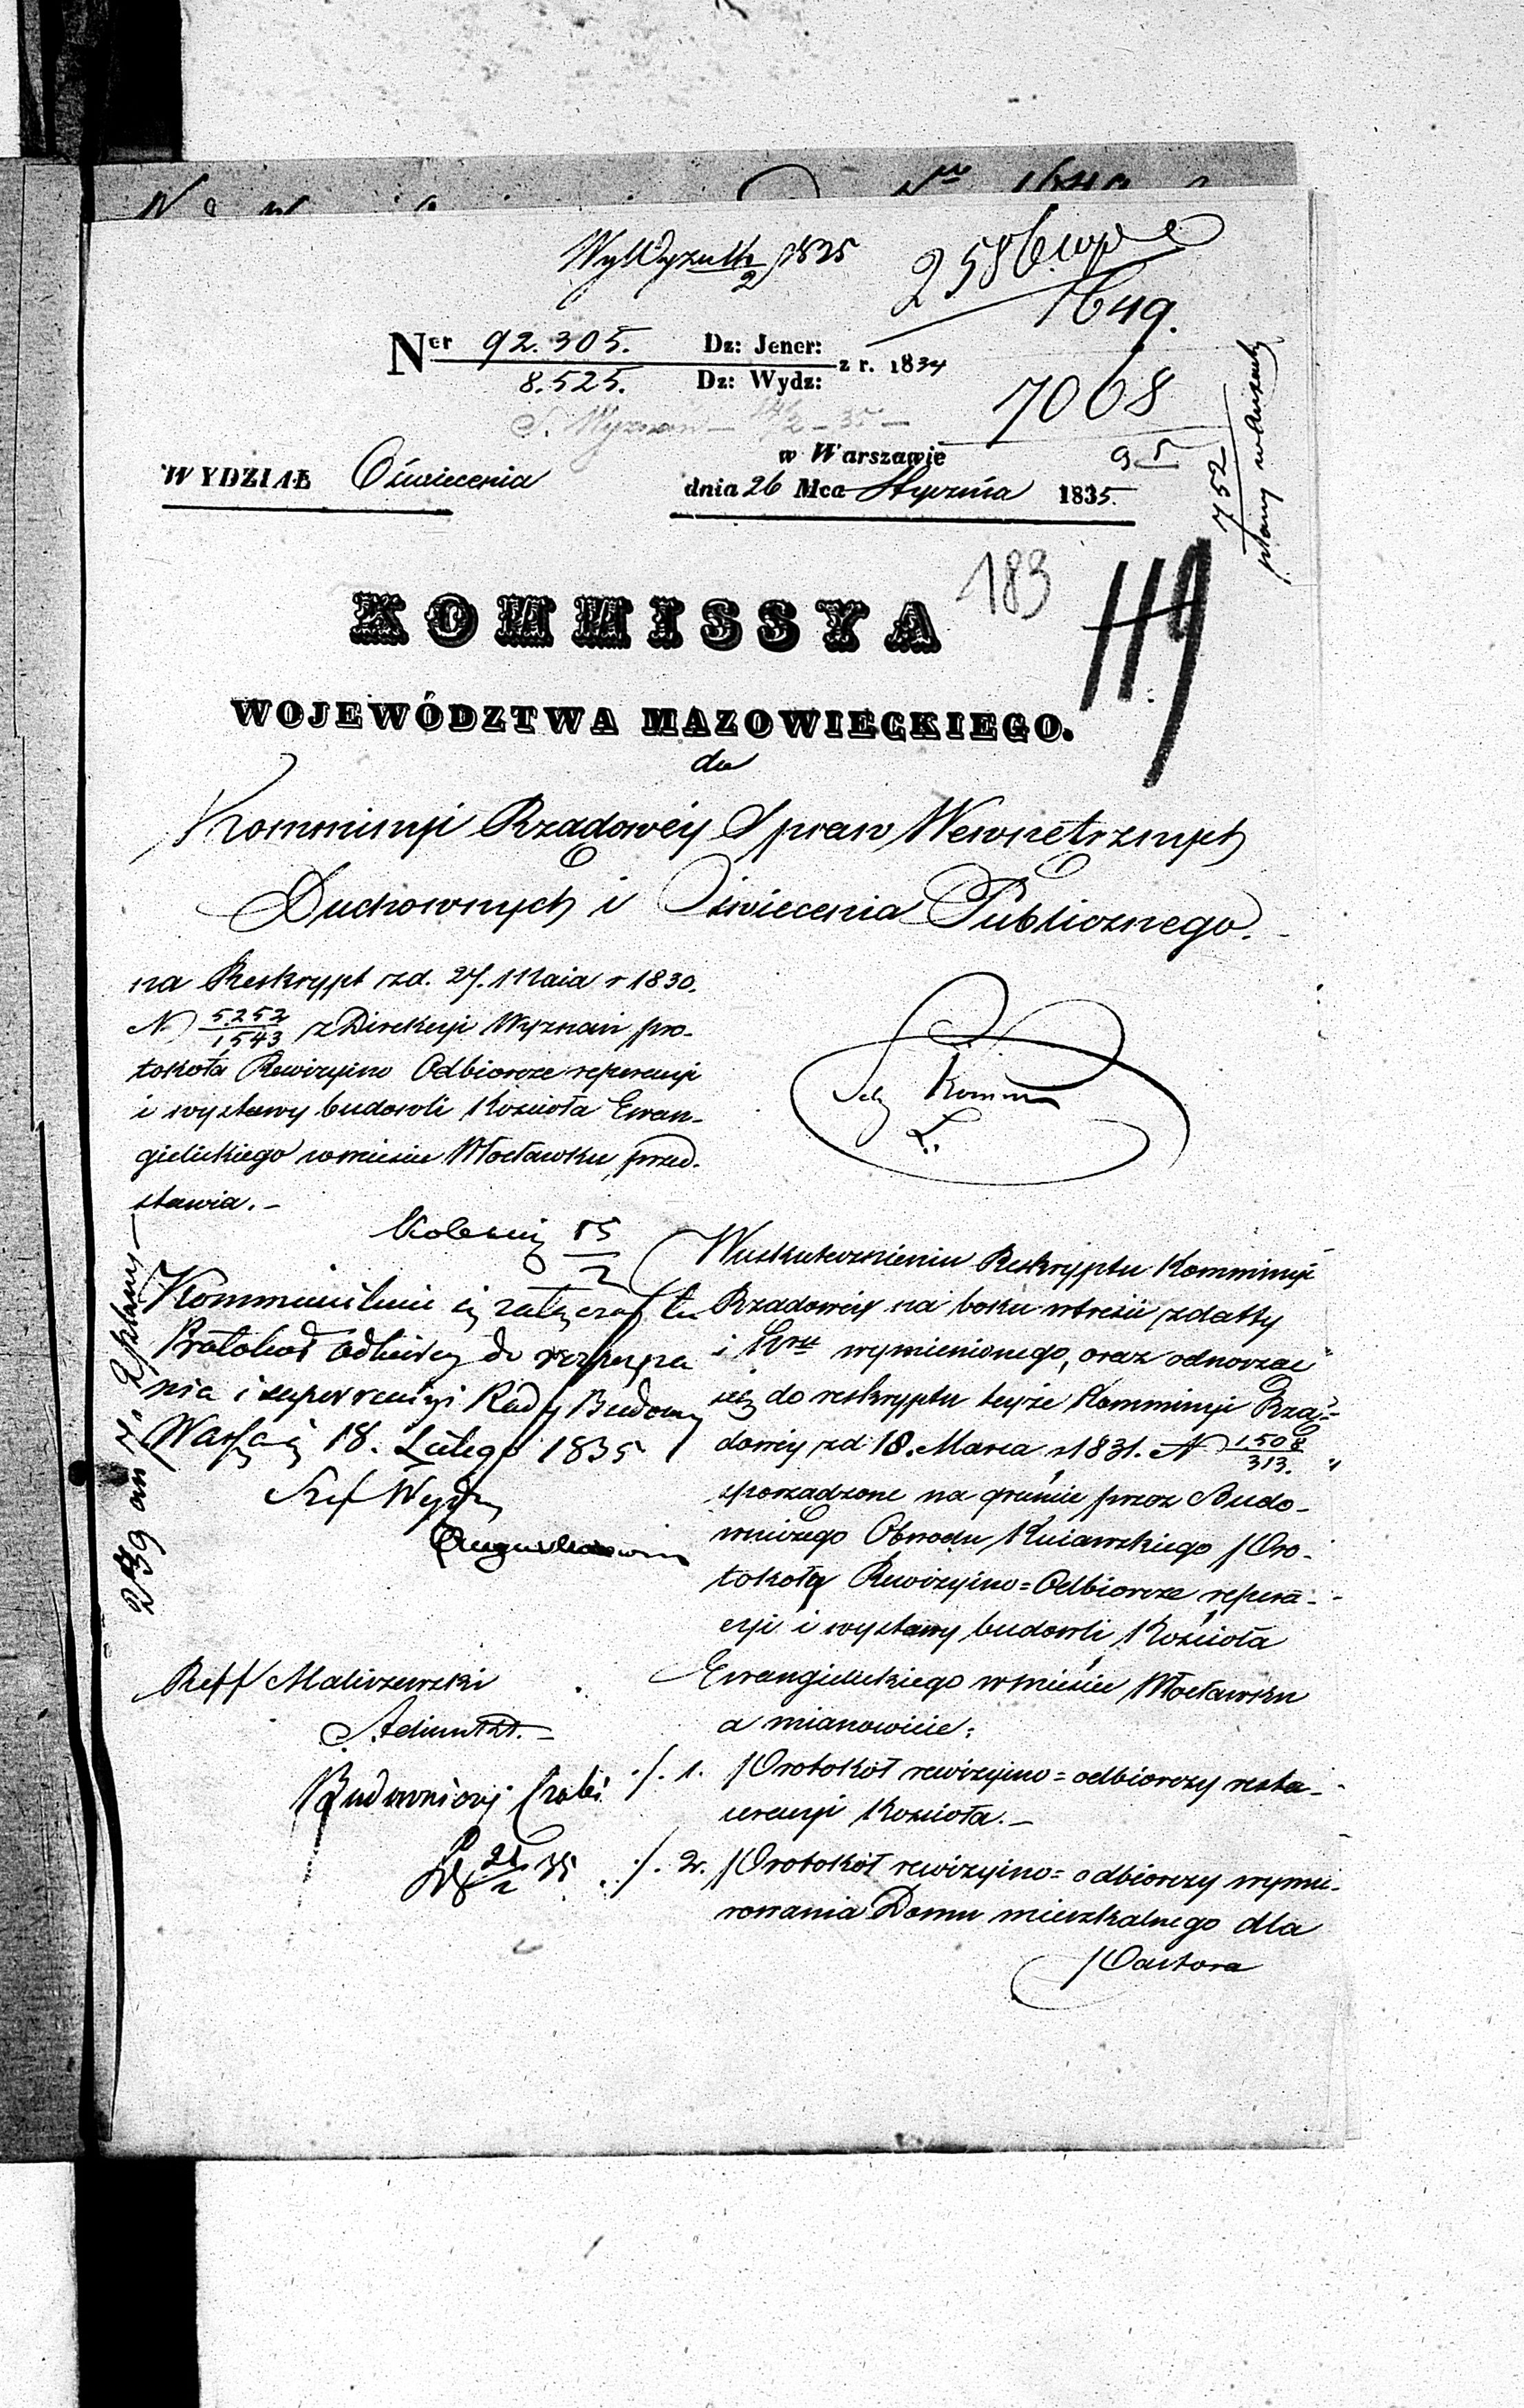 1835
2586
1649.
Ner 92.305. Dz: Jener: z r. 1834
8.525. Dz: Wydz:
7068
95
752
plany
w Warszawie
WYDZIAŁ Oświecenia
dnia 26 Mca Stycznia 1835.
183
119
KOMMISSYA
WOJEWÓDZTWA MAZOWIECKIEGO.
do
Kommissyi Rządowéy Spraw Wewnętrznych
Duchownych i Oświecenia Publicznego.
na Reskrypt zd. 27. Maia r 1830.
N 5252/1543 z Direkcyi Wyznań pro-
tokoła Rewizyino Odbiorcze reperacyi
i wystawy budowli Kościoła Ewan-
gielickiego w mieście Włocławku, przed-
stawia.-
Kommunikuie się załączone tu
Protokoł odbiorczy do rozpozna
nia i superrewizyi Rady Budowy
Warsza 18. Lutego 1835
Szef Wydz
Reff Maliszewski
Adiunkt.-
Budowniczy
W uskutecznieniu Reskryptu Kommissyi
Rządowéy na boku w treści z datty
i Nru wymienionego, oraz odnosząc
się do reskryptu teyże Kommissyi Rzą=
dowéy zd 18. Marca r 1831. N 1508/313.
sporządzone na gruncie przez Budo-
wniczego Obwodu Kuiawskiego Pro-
tokoły Rewizyino=Odbiorcze repera-
cyi i wystawy budowli Kościoła
Ewangielickiego w mieście Włocławku
a mianowicie:
./. 1. Protokół rewizyino=odbiorczy resta-
uracyi Kościoła.-
./. 2. Protokół rewizyino=odbiorczy wymu-
rowania Domu mieszkalnego dla
Pastora